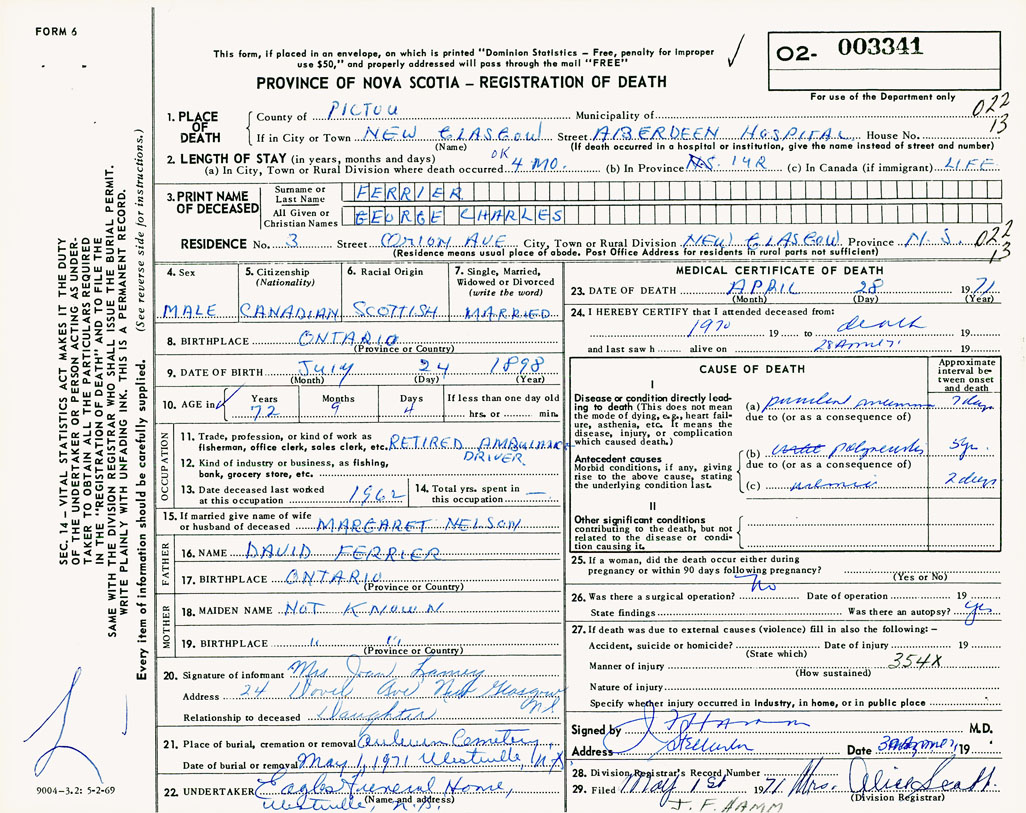 FORM 6
This form, if placed in an envelope, on which is printed "Dominion Statistics – Free, penalty for improper
use $50," and properly addressed will pass through the mail "FREE"
✓
O2- 003341
For use of the Department only
PROVINCE OF NOVA SCOTIA – REGISTRATION OF DEATH
022
13
1. PLACE OF DEATH
County of PICTOU Municipality of
If in City or Town NEW GLASGOW Street ABERDEEN HOSPITAL House No.
(Name) (If death occurred in a hospital or institution, give the name instead of street and number)
2. LENGTH OF STAY (in years, months and days)
OK
(a) In City, Town or Rural Division where death occurred 4 MO. (b) In Province N.S. 14R (c) In Canada (if immigrant) LIFE
3. PRINT NAME OF DECEASED
Surname or Last Name FERRIER
All Given or Christian Names GEORGE CHARLES
RESIDENCE No. 3 Street ORION AVE City, Town or Rural Division NEW GLASGOW Province N.S.
(Residence means usual place of abode. Post Office Address for residents in rural parts not sufficient)
022
13
4. Sex
MALE
5. Citizenship (Nationality)
CANADIAN
6. Racial Origin
SCOTTISH
7. Single, Married, Widowed or Divorced (write the word)
MARRIED
8. BIRTHPLACE ONTARIO
(Province or Country)
9. DATE OF BIRTH July 24 1898
(Month) (Day) (Year)
10. AGE in Years Months Days If less than one day old
72 9 4 hrs. or min.
OCCUPATION
11. Trade, profession, or kind of work as
fisherman, office clerk, sales clerk, etc. RETIRED AMBULANCE
DRIVER
12. Kind of industry or business, as fishing,
bank, grocery store, etc.
13. Date deceased last worked
at this occupation 1962
14. Total yrs. spent in
this occupation —
15. If married give name of wife
or husband of deceased MARGARET NELSON
FATHER
16. NAME DAVID FERRIER
17. BIRTHPLACE ONTARIO
(Province or Country)
MOTHER
18. MAIDEN NAME NOT KNOWN
19. BIRTHPLACE " "
(Province or Country)
20. Signature of informant Mrs Joan
Address 24 Ave New Glasgow
NS
Relationship to deceased Daughter
21. Place of burial, cremation or removal Auburn Cemetery,
Date of burial or removal May 1, 1971 Westville, N.S.
22. UNDERTAKER Eagles Funeral Home,
(Name and address)
Westville, N.S.
MEDICAL CERTIFICATE OF DEATH
23. DATE OF DEATH APRIL 28 1971
(Month) (Day) (Year)
24. I HEREBY CERTIFY that I attended deceased from:
1970 19 to death 19
and last saw h alive on 28 April 71 19
CAUSE OF DEATH
Approximate interval between onset and death
I
Disease or condition directly leading
to death (This does not
mean the mode of dying, e.g., heart failure,
asthenia, etc. It means the
disease, injury, or complication
which caused death.)
(a) 7 days
due to (or as a consequence of)
Antecedent causes
Morbid conditions, if any, giving
rise to the above cause, stating
the underlying condition last.
(b) 5 yr.
due to (or as a consequence of)
(c) 2 days
II
Other significant conditions
contributing to the death, but not
related to the disease or condition
causing it.
25. If a woman, did the death occur either during
pregnancy or within 90 days following pregnancy?
(Yes or No)
26. Was there a surgical operation? No Date of operation 19
State findings Was there an autopsy? yes
27. If death was due to external causes (violence) fill in also the following: –
Accident, suicide or homicide? Date of injury 19
(State which)
Manner of injury 354X
(How sustained)
Nature of injury
Specify whether injury occurred in industry, in home, or in public place
Signed by J F Hamm M.D.
Address Stellarton Date 30 April 71 19
28. Division Registrar's Record Number
29. Filed May 1st 1971 Mrs. Alice Scott
(Division Registrar)
J. F. HAMM
SEC. 14 – VITAL STATISTICS ACT MAKES IT THE DUTY
OF THE UNDERTAKER OR PERSON ACTING AS UNDERTAKER
TO OBTAIN ALL THE PARTICULARS REQUIRED
IN THE "REGISTRATION OF DEATH" AND TO FILE THE
SAME WITH THE DIVISION REGISTRAR WHO SHALL ISSUE THE BURIAL PERMIT.
WRITE PLAINLY WITH UNFADING INK. THIS IS A PERMANENT RECORD.
Every item of information should be carefully supplied. (See reverse side for instructions.)
9004–3.2: 5-2-69